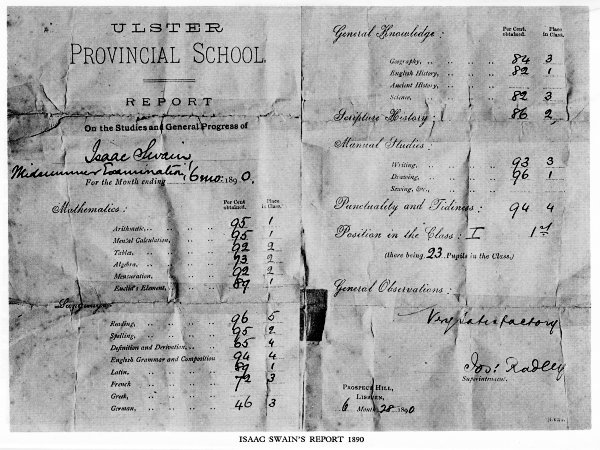 ULSTER
PROVINCIAL SCHOOL.
REPORT
On the Studies and General Progress of
Isaac Swain,
Midsummer Examination,
For the Month ending 6 mo. 1890.
Mathematics:
Per Cent obtained. Place in Class.
Arithmetic, 95 1
Mental Calculation, 95 1
Tables, 92 2
Algebra, 93 2
Mensuration, 92 2
Euclid's Element, 89 1
Language:
Reading, 96 5
Spelling, 95 2
Definition and Derivation, 65 4
English Grammar and Composition 94 4
Latin, 89 1
French 72 3
Greek,
German, 46 3
General Knowledge:
Per Cent. obtained. Place in Class.
Geography, 84 3
English History, 82 1
Ancient History,
Science, 82 3
Scripture History; 86 2
Manual Studies:
Writing, 93 3
Drawing, 96 1
Sewing, &c.,
Punctuality and Tidiness: 94 4
Position in the Class: I 1st
(there being 23 Pupils in the Class.)
General Observations:
Very satisfactory
Jos: Radley
Superintendent.
Prospect Hill,
Lisburn,
6 Month 28 1890
ISAAC SWAIN'S REPORT 1890